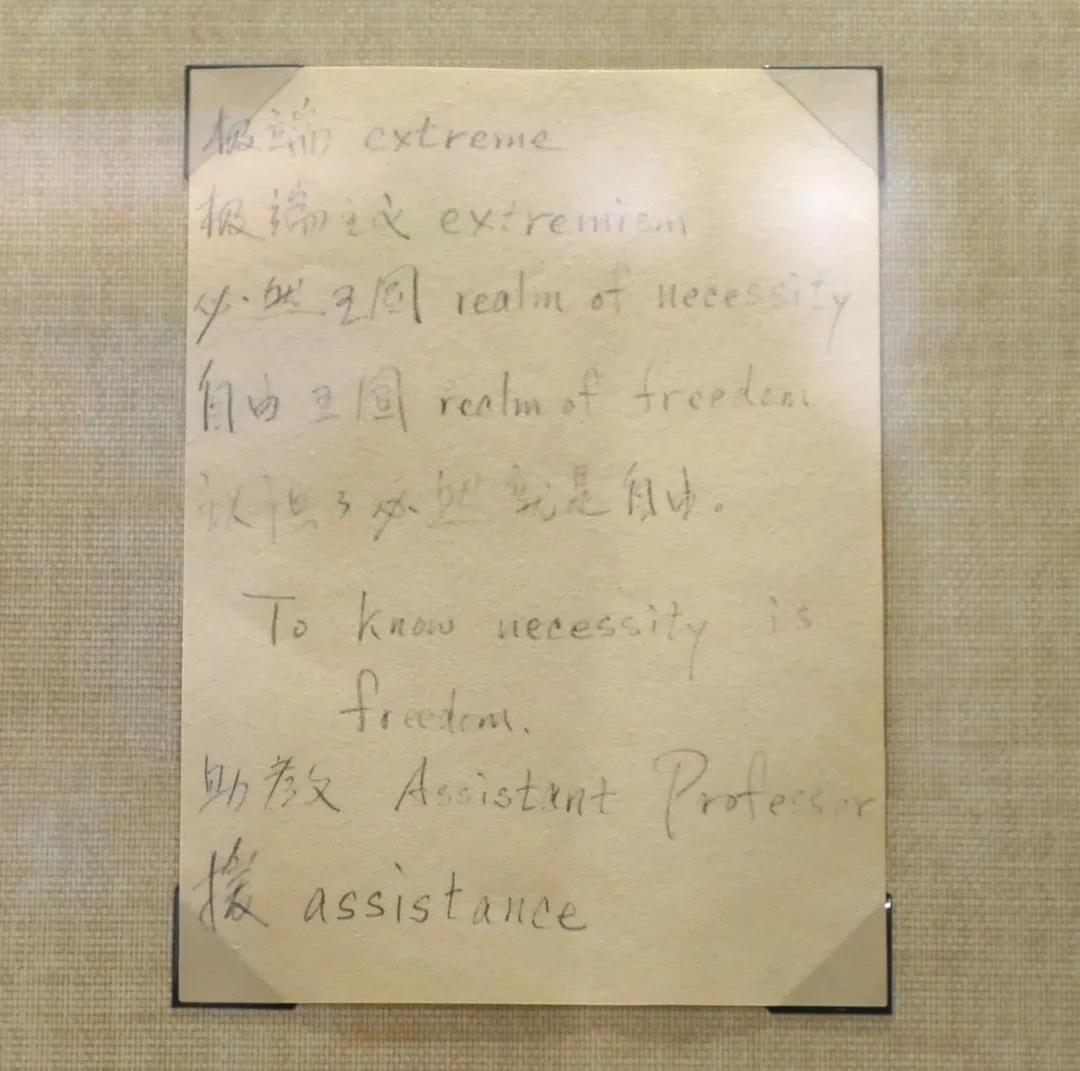 极端 extreme
极端主义 extremism
必然王国 realm of necessity
自由王国 realm of freedom
认识了必然就是自由。
To know necessity is
freedom.
助教 Assistant Professor
援 assistance